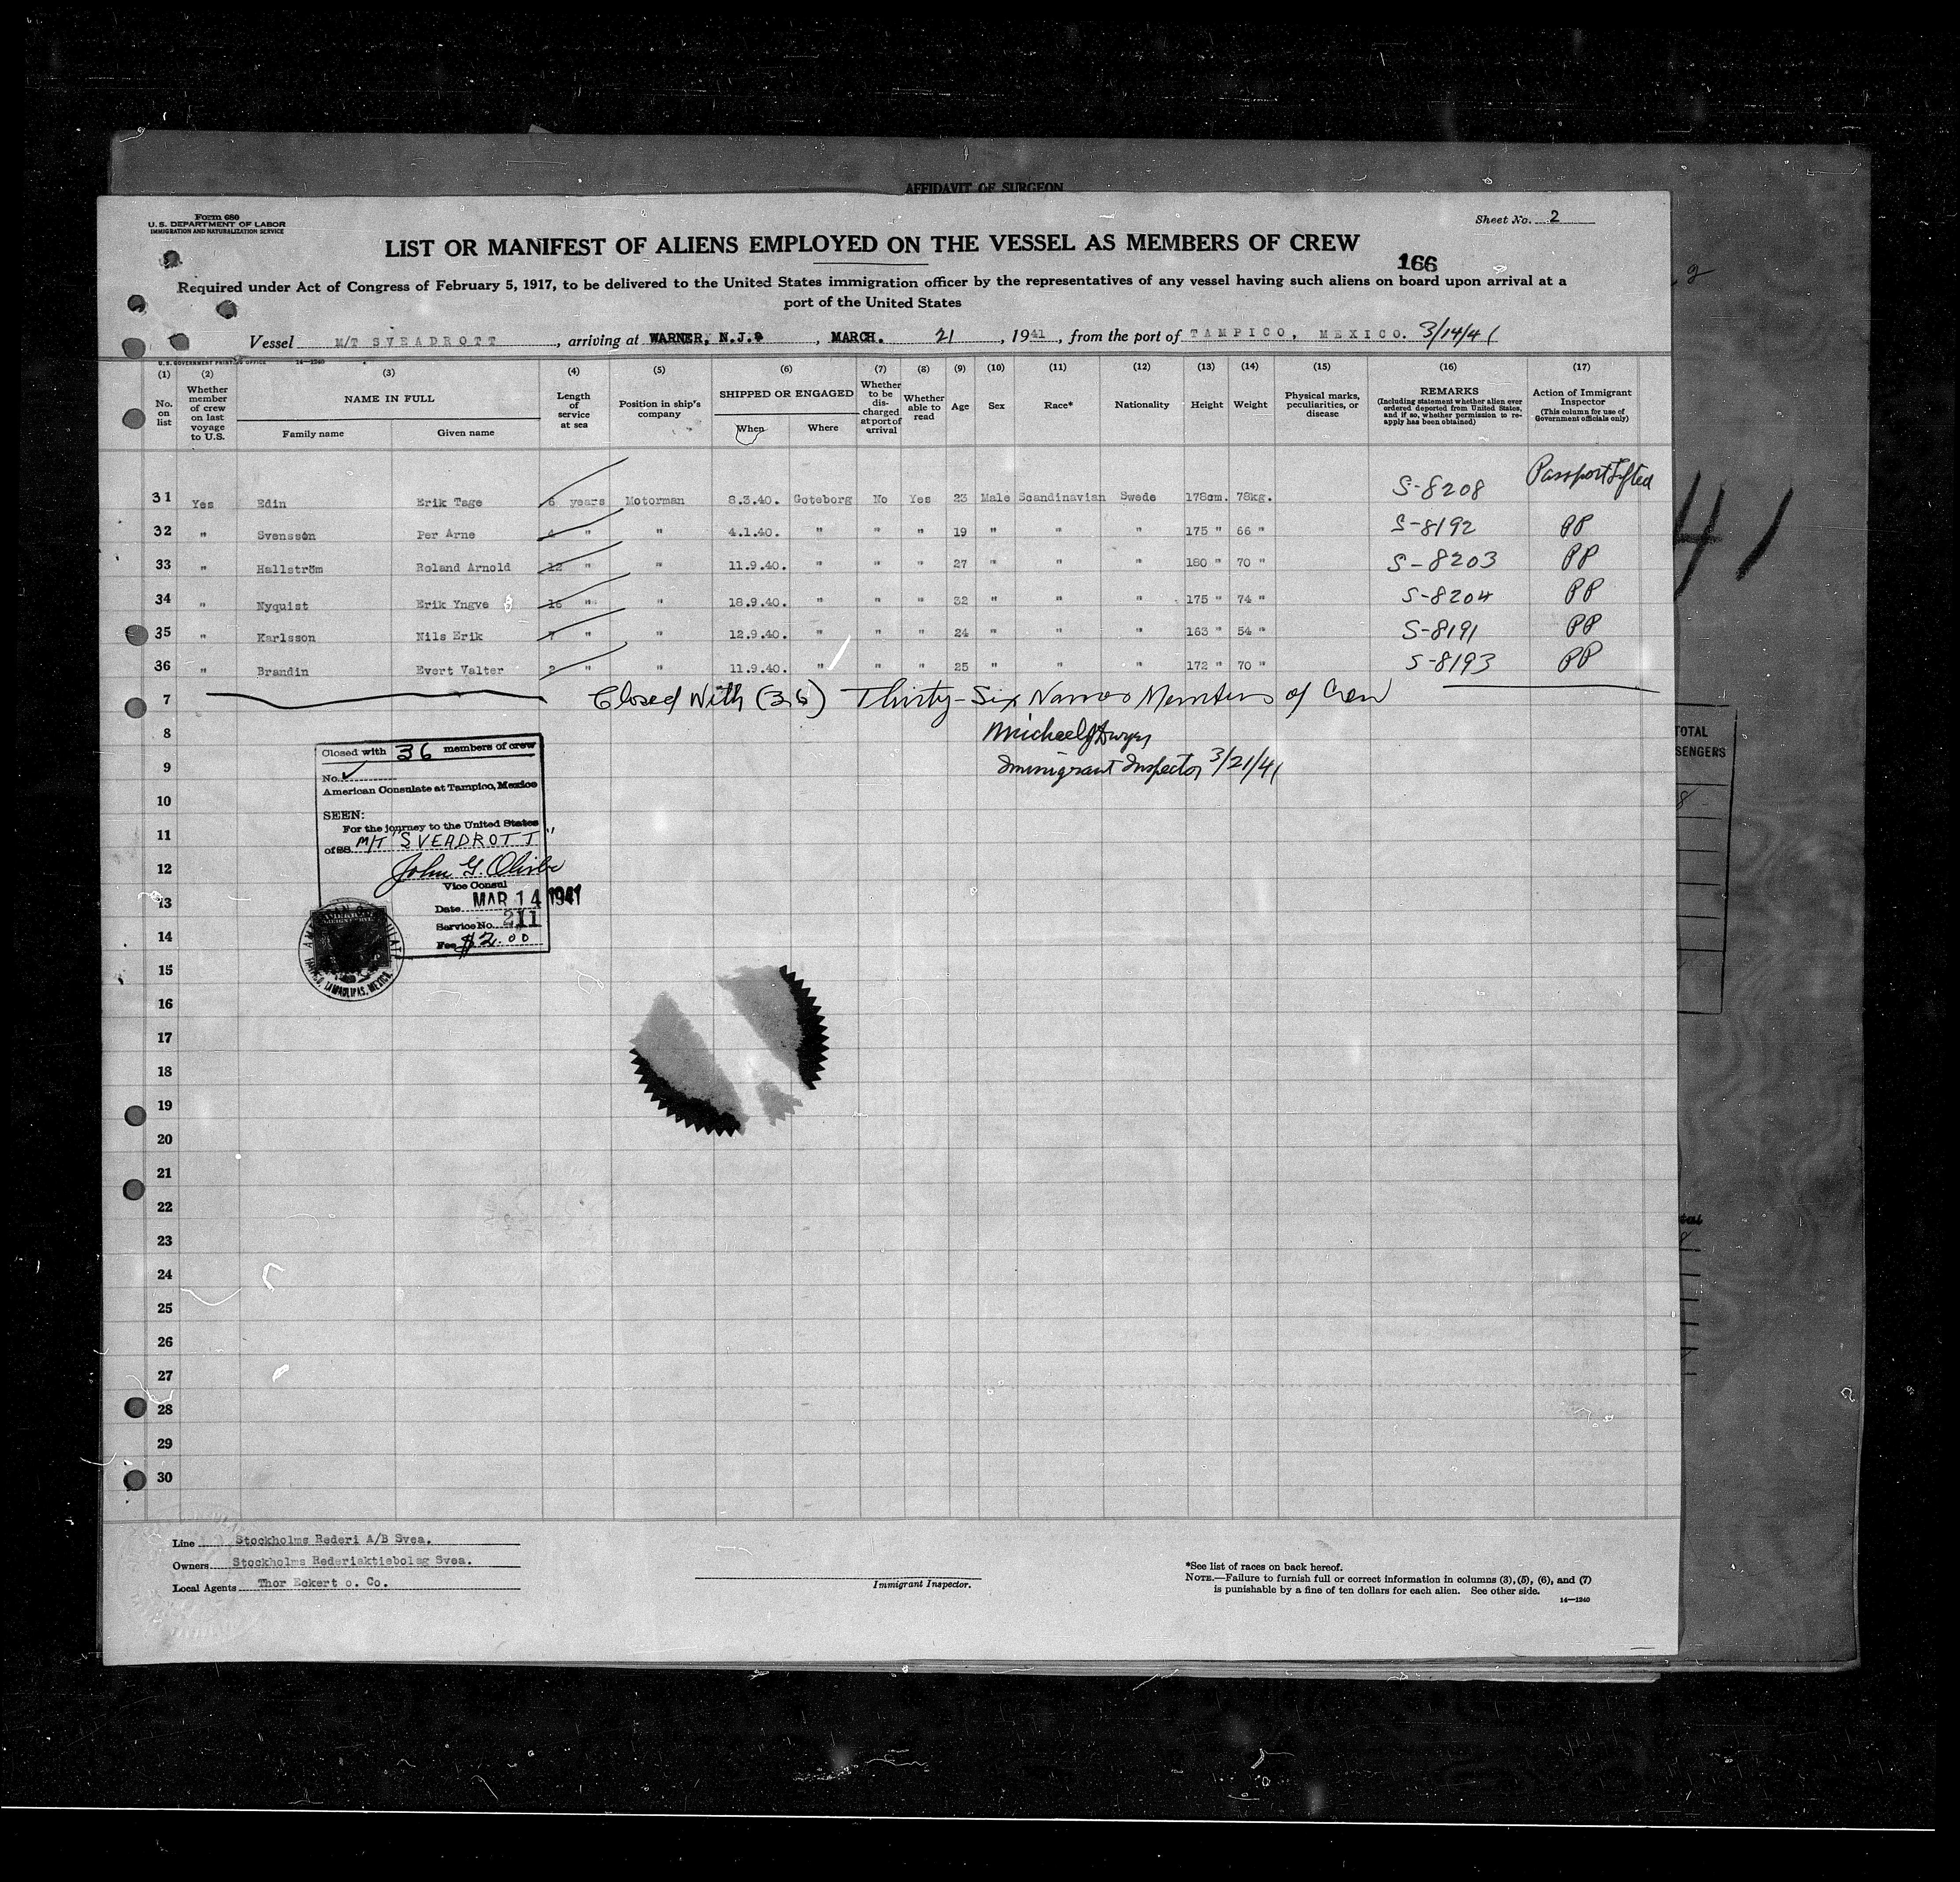 AFFIDAVIT OF SURGEON
Form 680
U. S. DEPARTMENT OF LABOR
IMMIGRATION AND NATURALIZATION SERVICE
Sheet No. 2
LIST OR MANIFEST OF ALIENS EMPLOYED ON THE VESSEL AS MEMBERS OF CREW
166
Required under Act of Congress of February 5, 1917, to be delivered to the United States immigration officer by the representatives of any vessel having such aliens on board upon arrival at a
port of the United States
Vessel M/T SVEADROTT, arriving at WARNER, N.J., MARCH. 21, 1941, from the port of TAMPICO, MEXICO. 3/14/41
U. S. GOVERNMENT PRINTING OFFICE 14-1240
(1) (2) (3) (4) (5) (6) (7) (8) (9) (10) (11) (12) (13) (14) (15) (16) (17)
No. on list
Whether member of crew on last voyage to U.S.
NAME IN FULL
Family name
Given name
Length of service at sea
Position in ship's company
SHIPPED OR ENGAGED
When
Where
Whether to be discharged at port of arrival
Whether able to read
Age
Sex
Race*
Nationality
Height
Weight
Physical marks, peculiarities, or disease
REMARKS
(Including statement whether alien ever ordered deported from United States, and if so, whether permission to reapply has been obtained)
Action of Immigrant Inspector
(This column for use of Government officials only)
31 Yes Edin Erik Tage 6 years Motorman 8.3.40. Goteborg No Yes 23 Male Scandinavian Swede 178cm. 78kg. S-8208 Passport Lifted
32 " Svensson Per Arne 4 " " 4.1.40. " " " 19 " " " 175 " 66 " S-8192 PP
33 " Hallström Roland Arnold 12 " " 11.9.40. " " " 27 " " " 180 " 70 " S-8203 PP
34 " Nyquist Erik Yngve 16 " " 18.9.40. " " " 32 " " " 175 " 74 " S-8204 PP
35 " Karlsson Nils Erik 7 " " 12.9.40. " " " 24 " " " 163 " 54 " S-8191 PP
36 " Brandin Evert Valter 2 " " 11.9.40. " " " 25 " " " 172 " 70 " S-8193 PP
7 Closed With (36) Thirty-Six Names Members of Crew
8 Michael J Dwyer
9 Immigrant Inspector 3/21/41
10
11
12
13
14
15
16
17
18
19
20
21
22
23
24
25
26
27
28
29
30
Closed with 36 members of crew
No.
American Consulate at Tampico, Mexico
SEEN:
For the journey to the United States
of SS. M/T "SVEADROTT"
John G. Oliver
Vice Consul
Date MAR 14 1941
Service No. 211
Fee $2.00
TAMPICO, TAMAULIPAS, MEXICO
TOTAL
SENGERS
41
Line Stockholms Rederi A/B Svea.
Owners Stockholms Rederiaktiebolag Svea.
Local Agents Thor Eckert o. Co.
Immigrant Inspector.
*See list of races on back hereof.
NOTE.—Failure to furnish full or correct information in columns (3), (5), (6), and (7)
is punishable by a fine of ten dollars for each alien. See other side.
14-1240